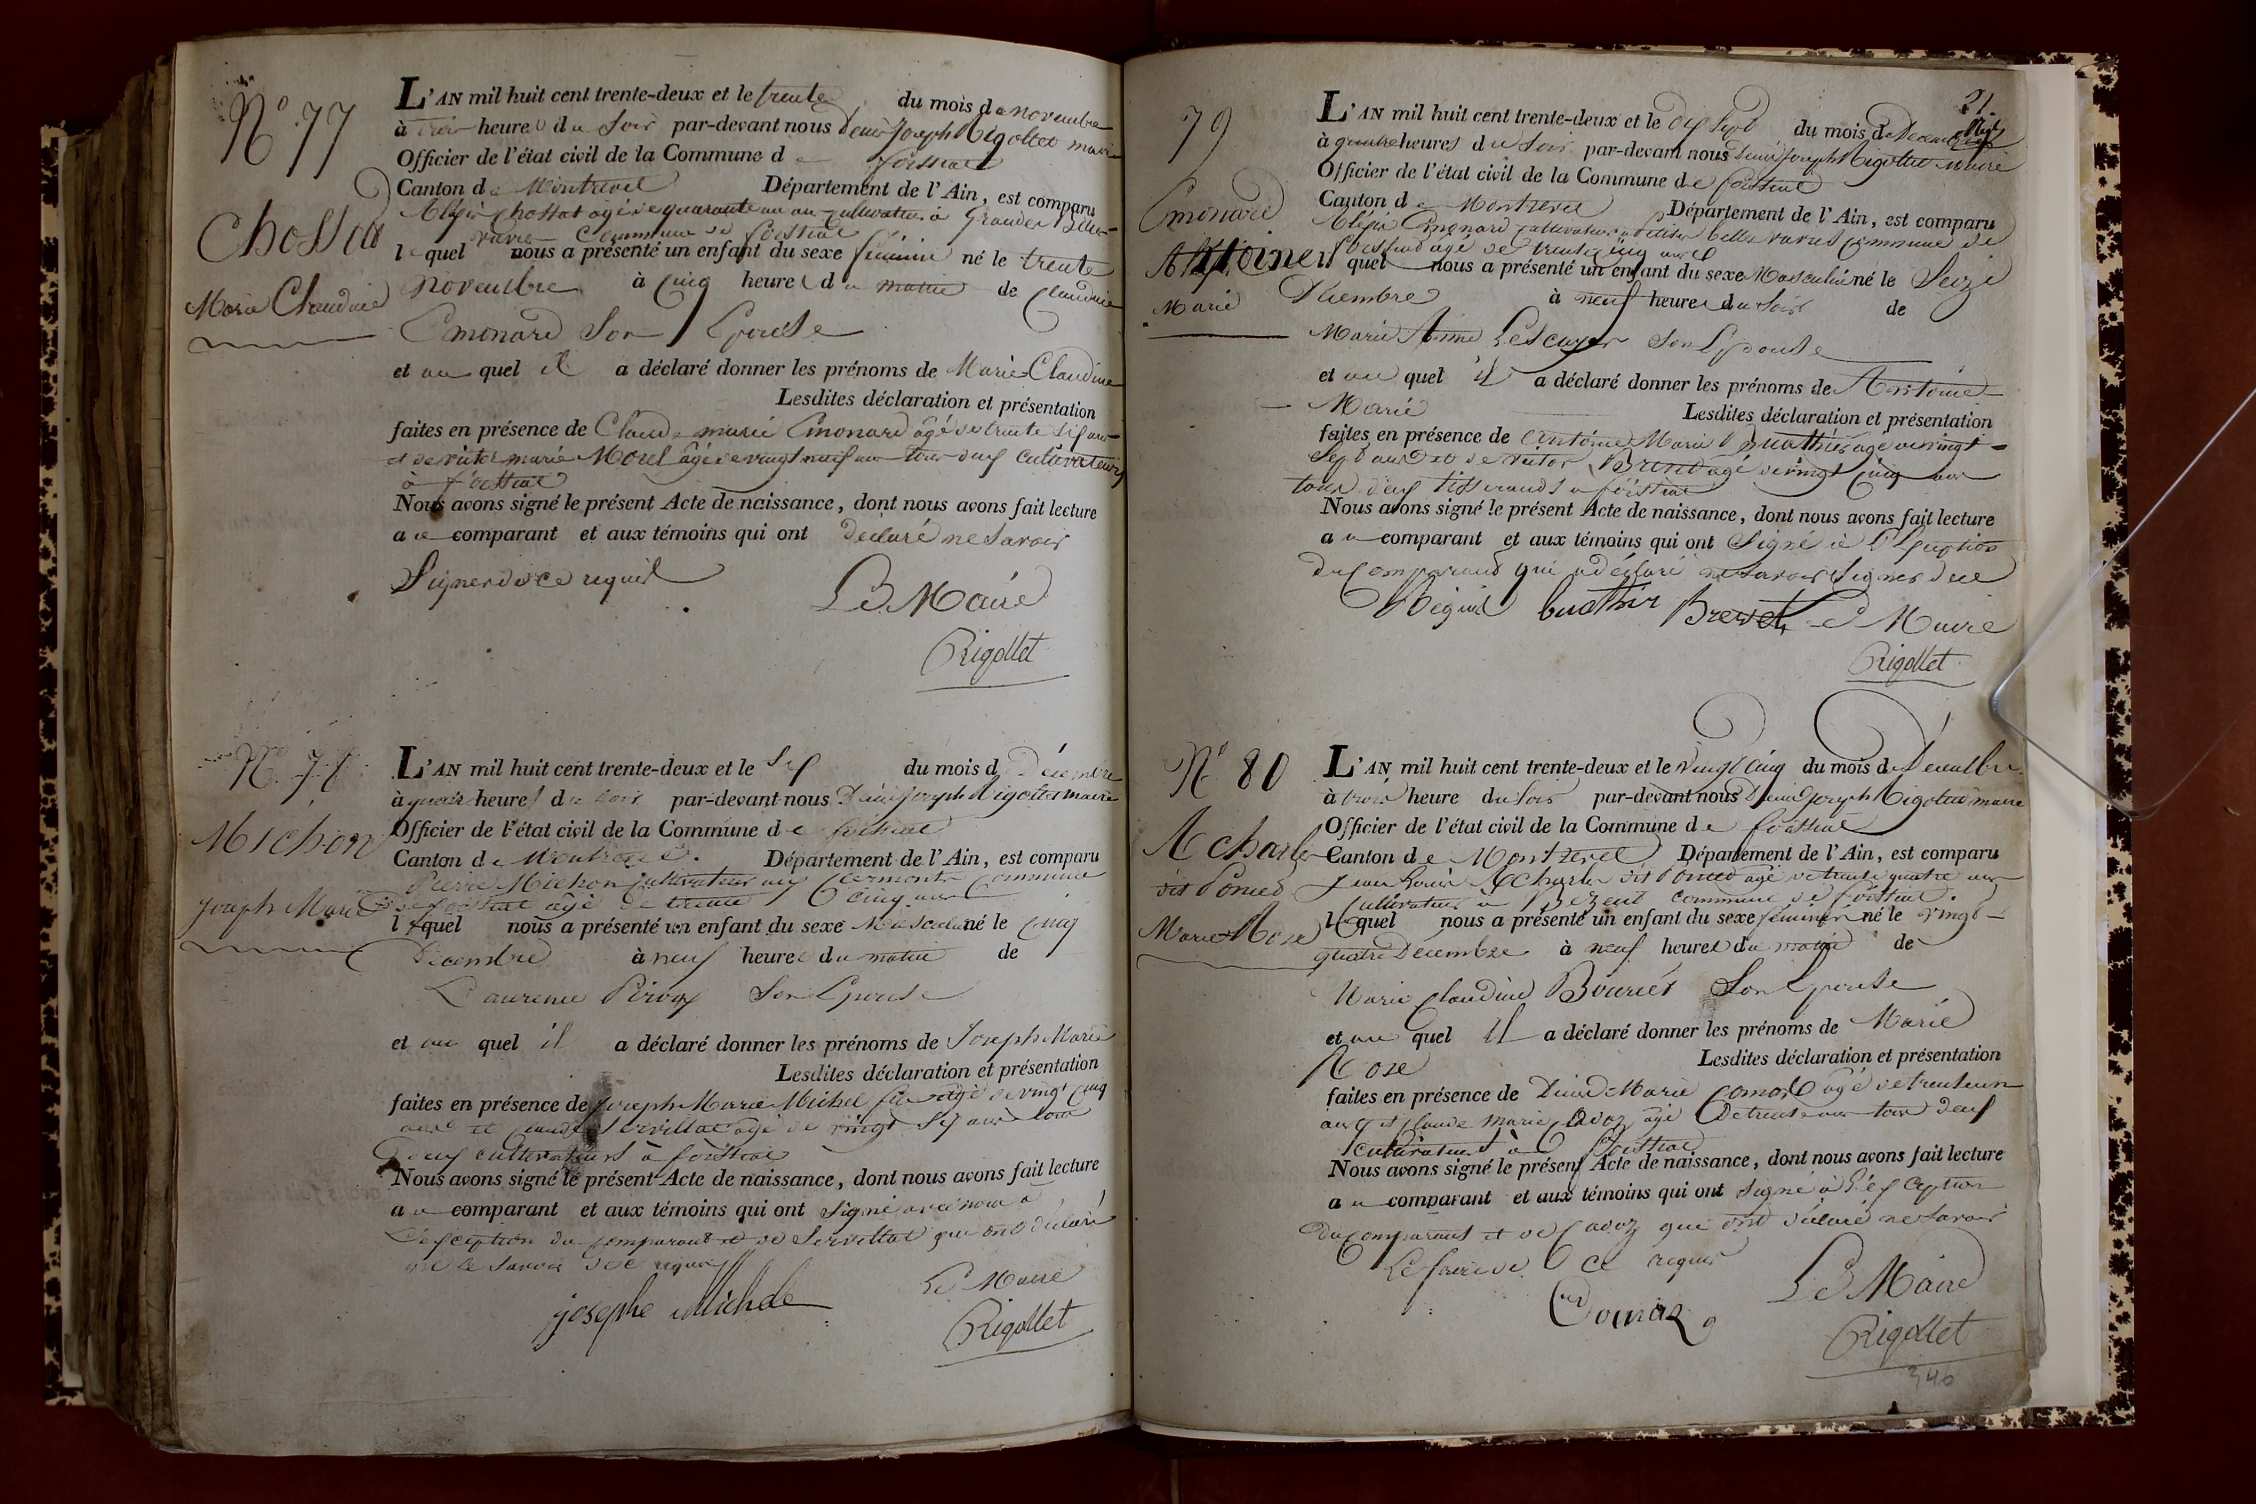 N° 77
Chossat
Marie Claudine
L'AN mil huit cent trente-deux et le trente du mois de novembre
à trois heures du Soir par-devant nous Denis Joseph Rigollet maire
Officier de l'état civil de la Commune de foissiat
Canton de Montrevel Département de l'Ain, est comparu
Chossat agé de quarante un an cultivateur à Grandes Belle-
vavre Commune de foissiat
lequel nous a présenté un enfant du sexe féminin né le trente
novembre à Cinq heures du matin de Claudine
Emonard Son Epouse
et au quel il a déclaré donner les prénoms de Marie Claudine
Lesdites déclaration et présentation
faites en présence de Claude marie Emonard âgé de trente six ans
et de victor marie Morel âgé de vingt neuf ans tous deux cultivateurs
à foissiat
Nous avons signé le présent Acte de naissance, dont nous avons fait lecture
au comparant et aux témoins qui ont déclaré ne Savoir
Signer de ce requis
Le Maire
Rigollet
N° 78
Michon
Joseph Marie
L'AN mil huit cent trente-deux et le Six du mois de Décembre
à quatre heures du Soir par-devant nous Denis Joseph Rigollet maire
Officier de l'état civil de la Commune de foissiat
Canton de Montrevel. Département de l'Ain, est comparu
Pierre Michon Cultivateur aux Clermonts Commune
de foissiat agé de trente Cinq ans
lequel nous a présenté un enfant du sexe Masculin né le Cinq
Décembre à neuf heures du matin de
Laurence Piroux Son Epouse
et au quel il a déclaré donner les prénoms de Joseph Marie
Lesdites déclaration et présentation
faites en présence de Joseph Marie Michel agé de vingt Cinq
ans et Claude Servillat agé de vingt Six ans tous
Deux cultivateurs à foissiat
Nous avons signé le présent Acte de naissance, dont nous avons fait lecture
au comparant et aux témoins qui ont Signé avec nous à
L'exception du Comparant et de Servillat qui ont déclaré
ne le Savoir de ce requis
Le Maire
josephe Michele
Rigollet
21.
79
Emonard
Antoine
Marie
L'AN mil huit cent trente-deux et le dix Sept du mois de Décembre
à quatre heures du Soir par-devant nous Denis Joseph Rigollet Maire
Officier de l'état civil de la Commune de foissiat
Canton de Montrevel Département de l'Ain, est comparu
Emonard Cultivateur à Petites bellevavres Commune de
foissiat agé de trente Cinq ans
lequel nous a présenté un enfant du sexe Masculin né le Seize
Décembre à neuf heures du Soir de
Marie Lescuyer Son Epouse
et au quel il a déclaré donner les prénoms de Antoine
Marie Lesdites déclaration et présentation
faites en présence de Antoine Marie Buathier agé de vingt
Sept ans et de victor Brevet agé de vingt Cinq ans
tous deux tisserands à foissiat
Nous avons signé le présent Acte de naissance, dont nous avons fait lecture
au comparant et aux témoins qui ont Signé à l'Exception
du Comparant qui a déclaré ne Savoir Signer de ce
Requis buathier Brevet Le Maire
Rigollet
N° 80
Acharles
dit Poncet
Marie Rose
L'AN mil huit cent trente-deux et le vingt Cinq du mois de Décembre
à trois heure du Soir par-devant nous Denis Joseph Rigollet maire
Officier de l'état civil de la Commune de foissiat
Canton de Montrevel Département de l'Ain, est comparu
Jean Louis Acharles dit Poncet agé de trente quatre ans
Cultivateur à Commune de foissiat.
lequel nous a présenté un enfant du sexe féminin né le vingt
quatre Décembre à neuf heures du matin de
Marie Claudine Bouriés Son Epouse
et au quel il a déclaré donner les prénoms de Marie
Rose Lesdites déclaration et présentation
faites en présence de Denis Marie Comas agé de trente un
ans et Claude Marie Cadoz agé de trente ans tous deux
Cultivateurs à foissiat
Nous avons signé le présent Acte de naissance, dont nous avons fait lecture
au comparant et aux témoins qui ont Signé à l'exception
du Comparant et de Cadoz qui ont déclaré ne Savoir
Le faire de Ce requis
Le Maire
Comas
Rigollet
346